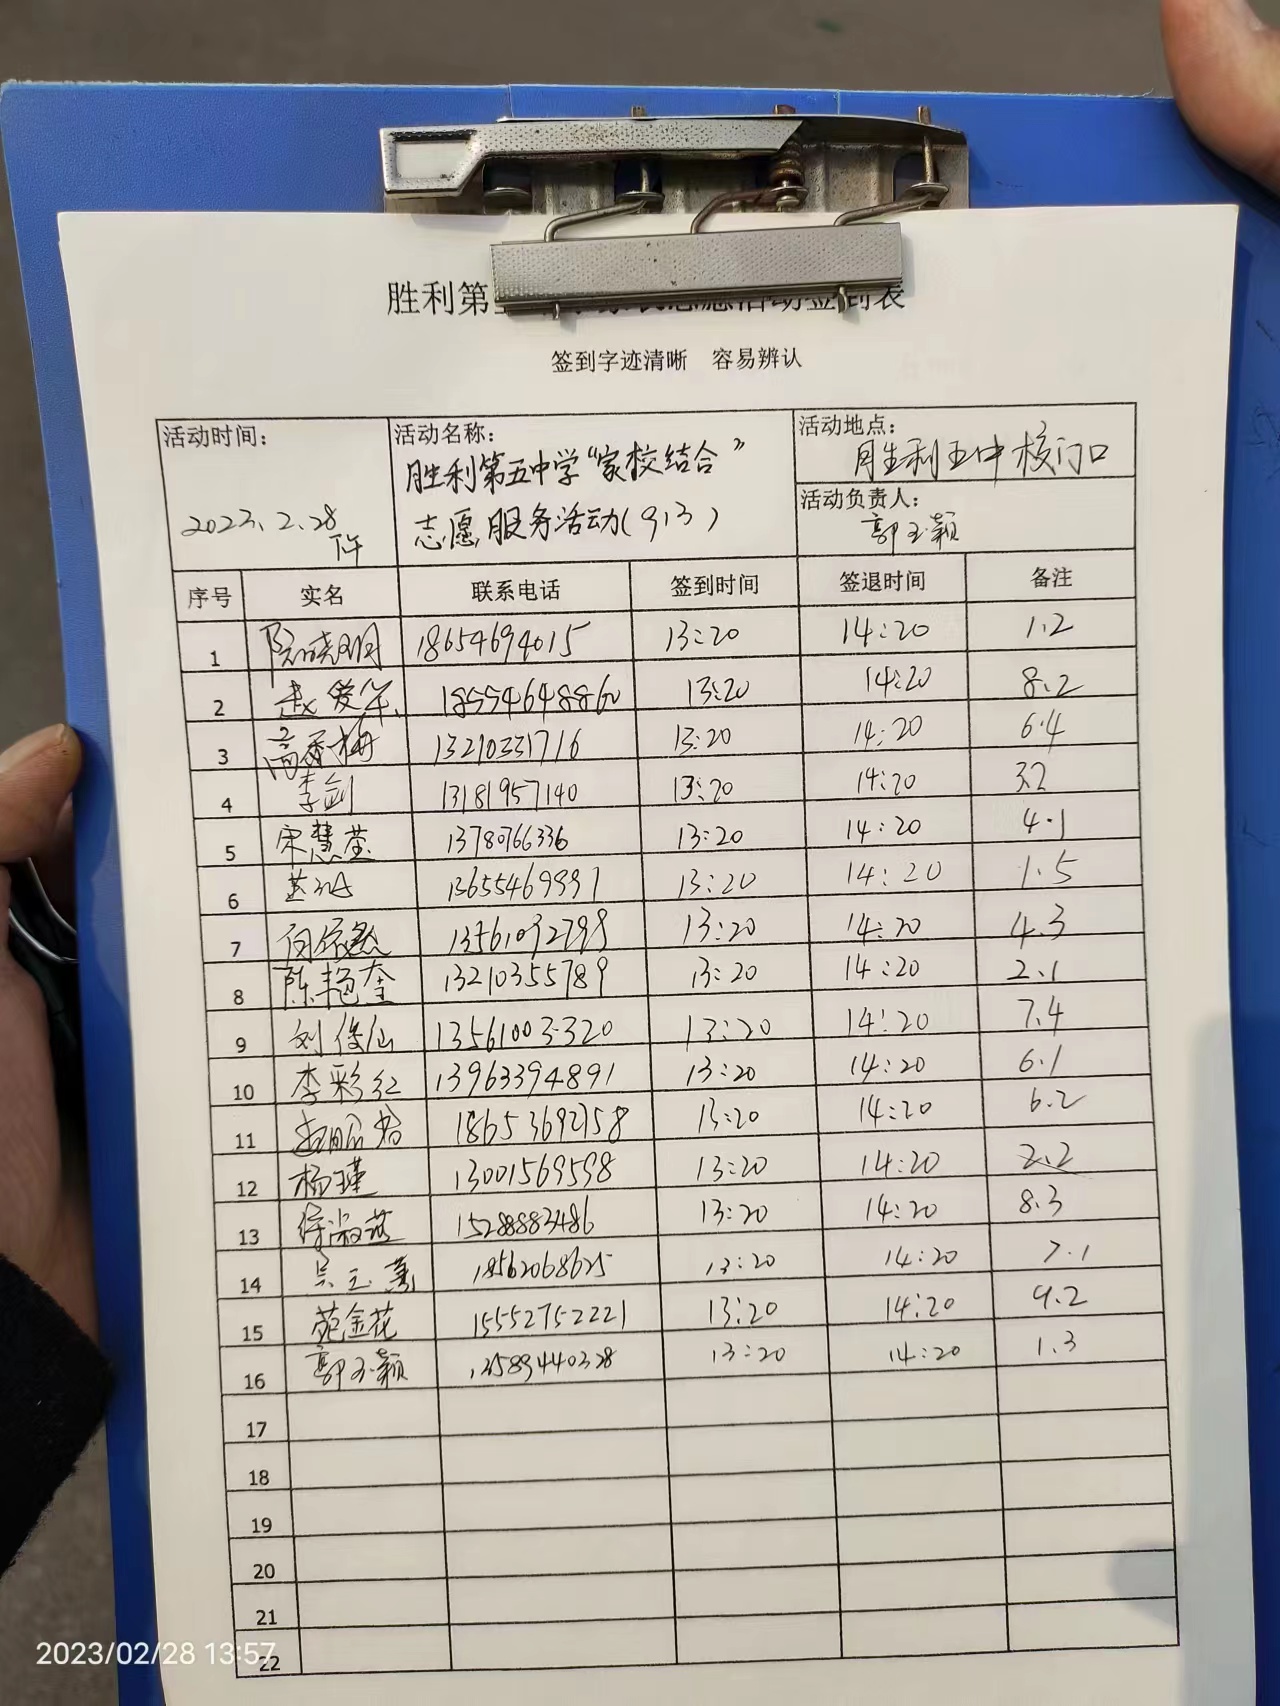 胜利第
签到字迹清晰 容易辨认
活动时间：
2023.2.28
下午
活动名称：
胜利第五中学“家校结合”
志愿服务活动（913）
活动地点：
胜利五中校门口
活动负责人：
郭玉颖
序号 实名 联系电话 签到时间 签退时间 备注
1 18654694015 13:20 14:20 1.2
2 赵爱华 18554648860 13:20 14:20 8.2
3 高香梅 13210331716 13:20 14:20 6.4
4 李剑 13181957140 13:20 14:20 3.2
5 宋慧莹 13780766336 13:20 14:20 4.1
6 13655469991 13:20 14:20 1.5
7 13561092799 13:20 14:20 4.3
8 陈艳奎 13210355789 13:20 14:20 2.1
9 刘俊仙 13561003320 13:20 14:20 7.4
10 李彩红 13963394891 13:20 14:20 6.1
11 18653692158 13:20 14:20 6.2
12 杨瑾 13001569598 13:20 14:20 2.2
13 15288883486 13:20 14:20 8.3
14 吴玉 18562068625 13:20 14:20 7.1
15 苑金花 15552752221 13:20 14:20 9.2
16 郭玉颖 13589440328 13:20 14:20 1.3
17
18
19
20
21
22
2023/02/28 13:57